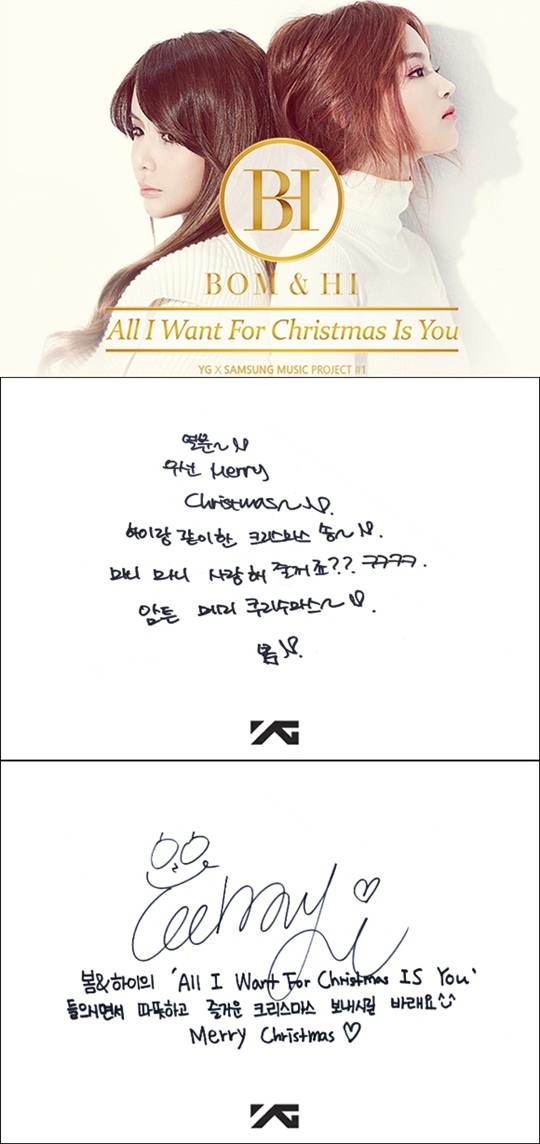 BH
BOM & HI
All I Want For Christmas Is You
YG X SAMSUNG MUSIC PROJECT #1
열분~♡
우선 Merry
Christmas~♡.
하이랑 같이한 크리스마스 송~♡.
마니 마니 사랑해 주거죠?? ㅋㅋㅋㅋ.
암튼 메리 쿠리수마스~♡.
봄♡.
YG
봄&하이의 'All I Want For Christmas IS You'
들으시면서 따뜻하고 즐거운 크리스마스 보내시길 바래요
Merry Christmas ♡
YG